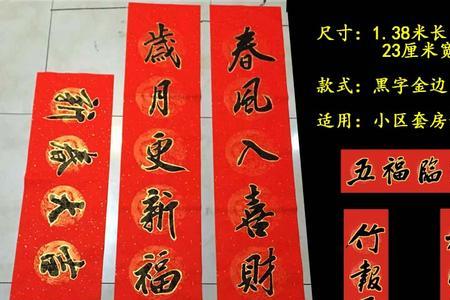 春風入喜財
歲月更新福
新春大吉
尺寸：1.38米长
23厘米宽
款式：黑字金边
适用：小区套房
五福臨
竹報